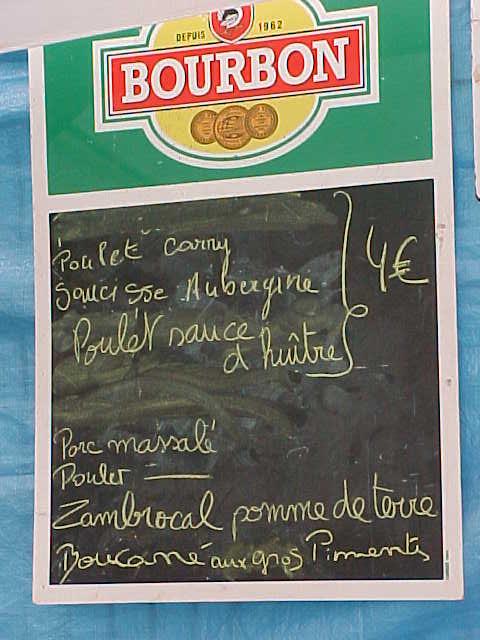 DEPUIS 1962
BOURBON
Poulet carry
Saucisse Aubergine
4€
Poulet sauce
d'huître
Porc massalé
Poulet —
Zambrocal pomme de terre
Boucané aux gros Piments